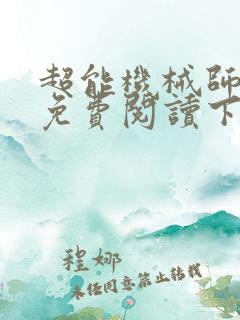 超能機械師
免費閱讀下
程娜
未任同意禁止转载